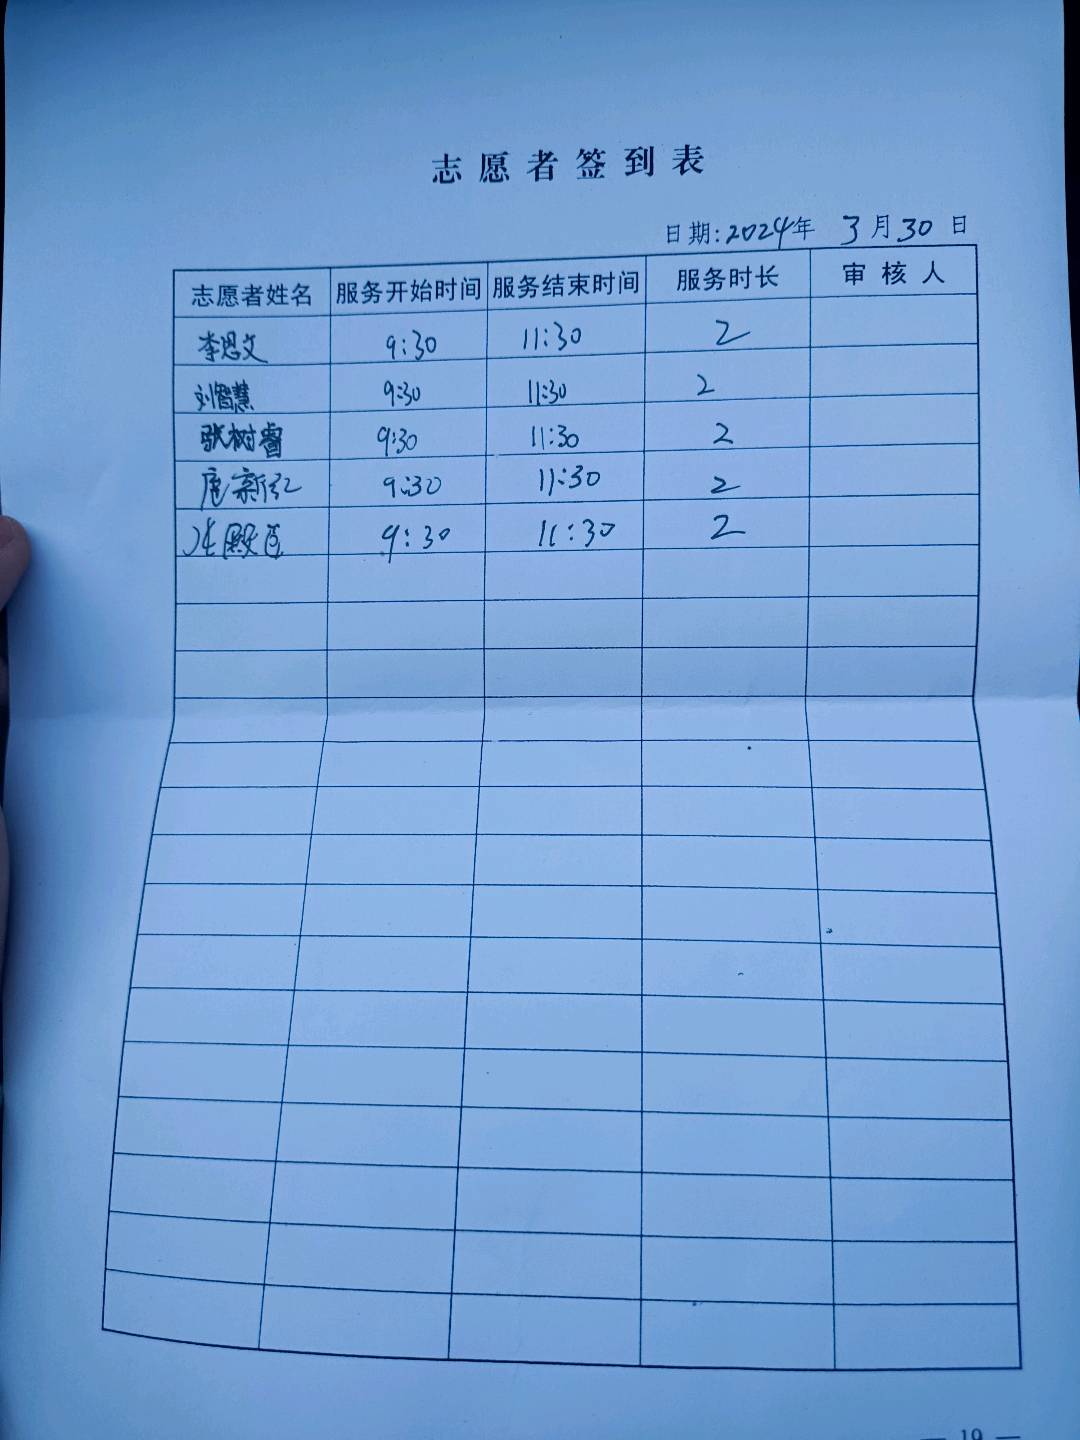 志愿者签到表
日期:2024年 3月30日
志愿者姓名 服务开始时间 服务结束时间 服务时长 审核人
李思文 9:30 11:30 2
刘智慧 9:30 11:30 2
张树睿 9:30 11:30 2
唐新红 9:30 11:30 2
9:30 11:30 2
— 19 —